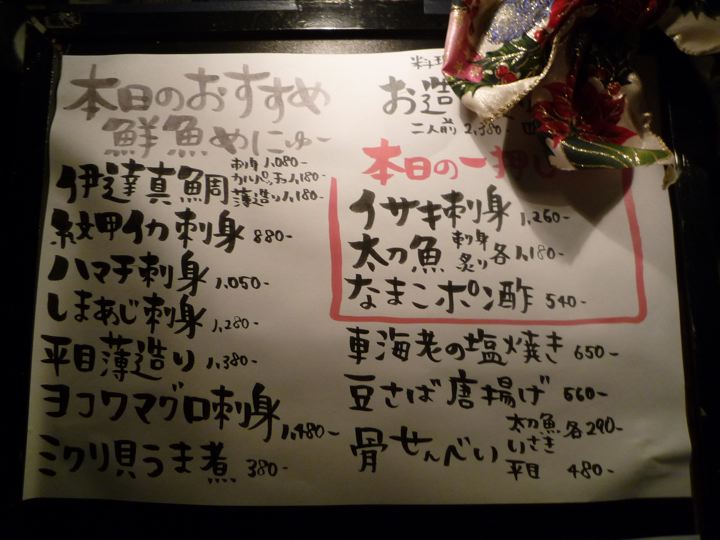 本日のおすすめ
鮮魚めにゅー
伊達真鯛 刺身 1,080- カルパッチョ 1,180- 薄造り 1,180-
紋甲イカ刺身 880-
ハマチ刺身 1,050-
しまあじ刺身 1,280-
平目薄造り 1,380-
ヨコワマグロ刺身 1,480-
ミクリ貝うま煮 380-
料理
お造
二人前 2,380-
本日の一押し
イサキ刺身 1,260-
太刀魚 刺身 炙り 各1,180-
なまこポン酢 540-
車海老の塩焼き 650-
豆さば唐揚げ 560-
骨せんべい 太刀魚 いさき 各290-
平目 480-